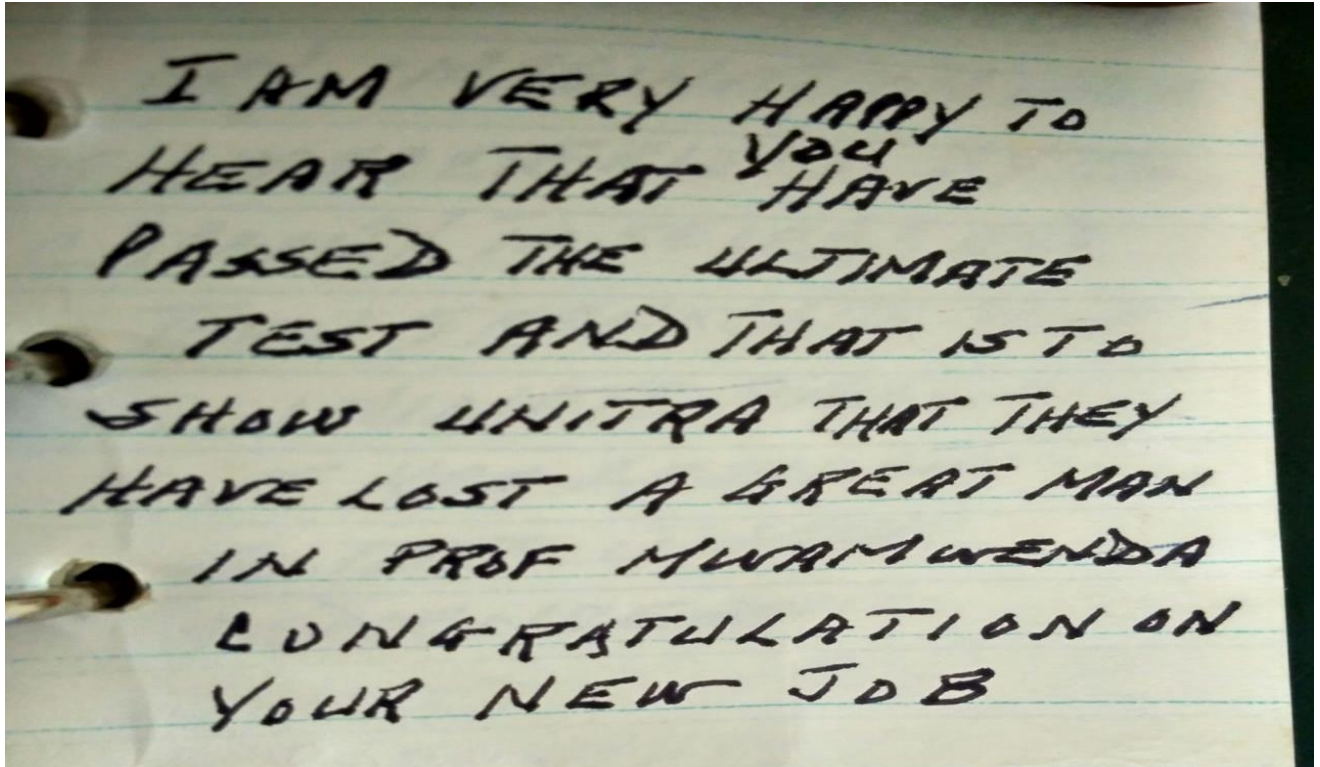 I AM VERY HAPPY TO
HEAR THAT YOU HAVE
PASSED THE ULTIMATE
TEST AND THAT IS TO
SHOW UNITRA THAT THEY
HAVE LOST A GREAT MAN
IN PROF MWAMWENDA
CONGRATULATION ON
YOUR NEW JOB